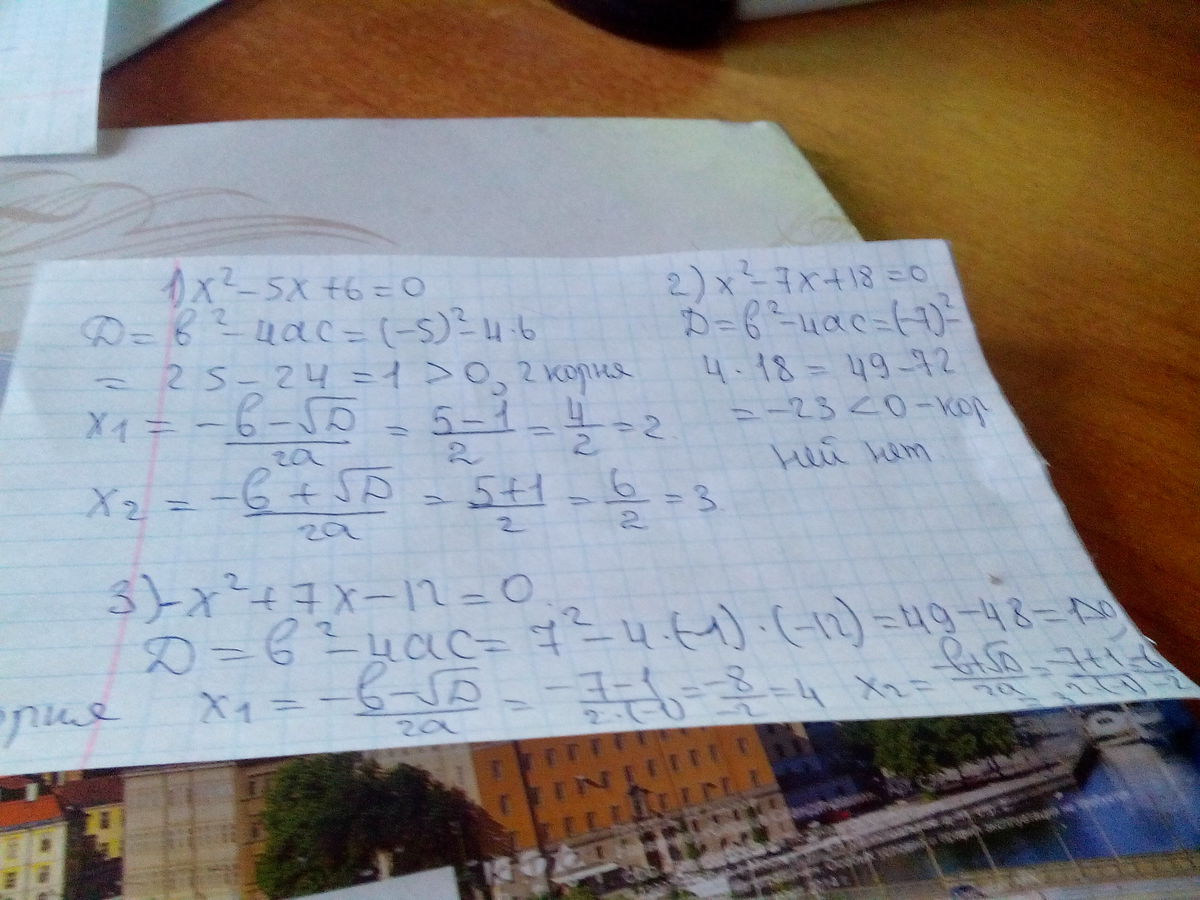 1) x² - 5x + 6 = 0
D = b² - 4ac = (-5)² - 4·6
= 25 - 24 = 1 > 0, 2 корня
x₁ = (-b - √D)/2a = (5 - 1)/2 = 4/2 = 2.
x₂ = (-b + √D)/2a = (5 + 1)/2 = 6/2 = 3.
2) x² - 7x + 18 = 0
D = b² - 4ac = (-7)² -
4·18 = 49 - 72
= -23 < 0 - кор
ней нет.
3) -x² + 7x - 12 = 0.
D = b² - 4ac = 7² - 4·(-1)·(-12) = 49 - 48 = 1 > 0,
x₁ = (-b - √D)/2a = (-7 - 1)/(2·(-1)) = -8/-2 = 4
x₂ = (-b + √D)/2a = (-7 + 1)/(2·(-1)) = -6/-2
= 3